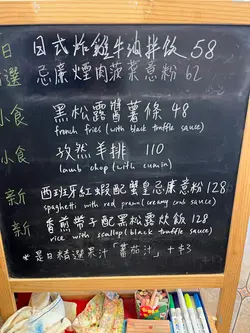 日 日式炸雞牛油拌飯 58
選 忌廉煙肉菠菜意粉 62
小食 黑松露醬薯條 48
french fries (with black truffle sauce)
小食 孜然羊排 110
lamb chop (with cumin)
新 西班牙紅蝦配蟹皇忌廉意粉 128
spaghetti with red prawn (creamy crab sauce)
新 香煎帶子配黑松露炊飯 128
rice with scallop (black truffle sauce)
*是日精選果汁「蕃茄汁」+$3